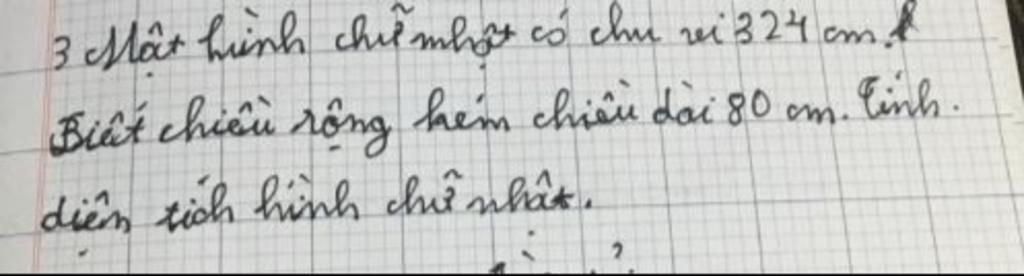 3 Một hình chữ nhật có chu vi 324 cm.
Biết chiều rộng kém chiều dài 80 cm. Tính.
diện tích hình chữ nhật.